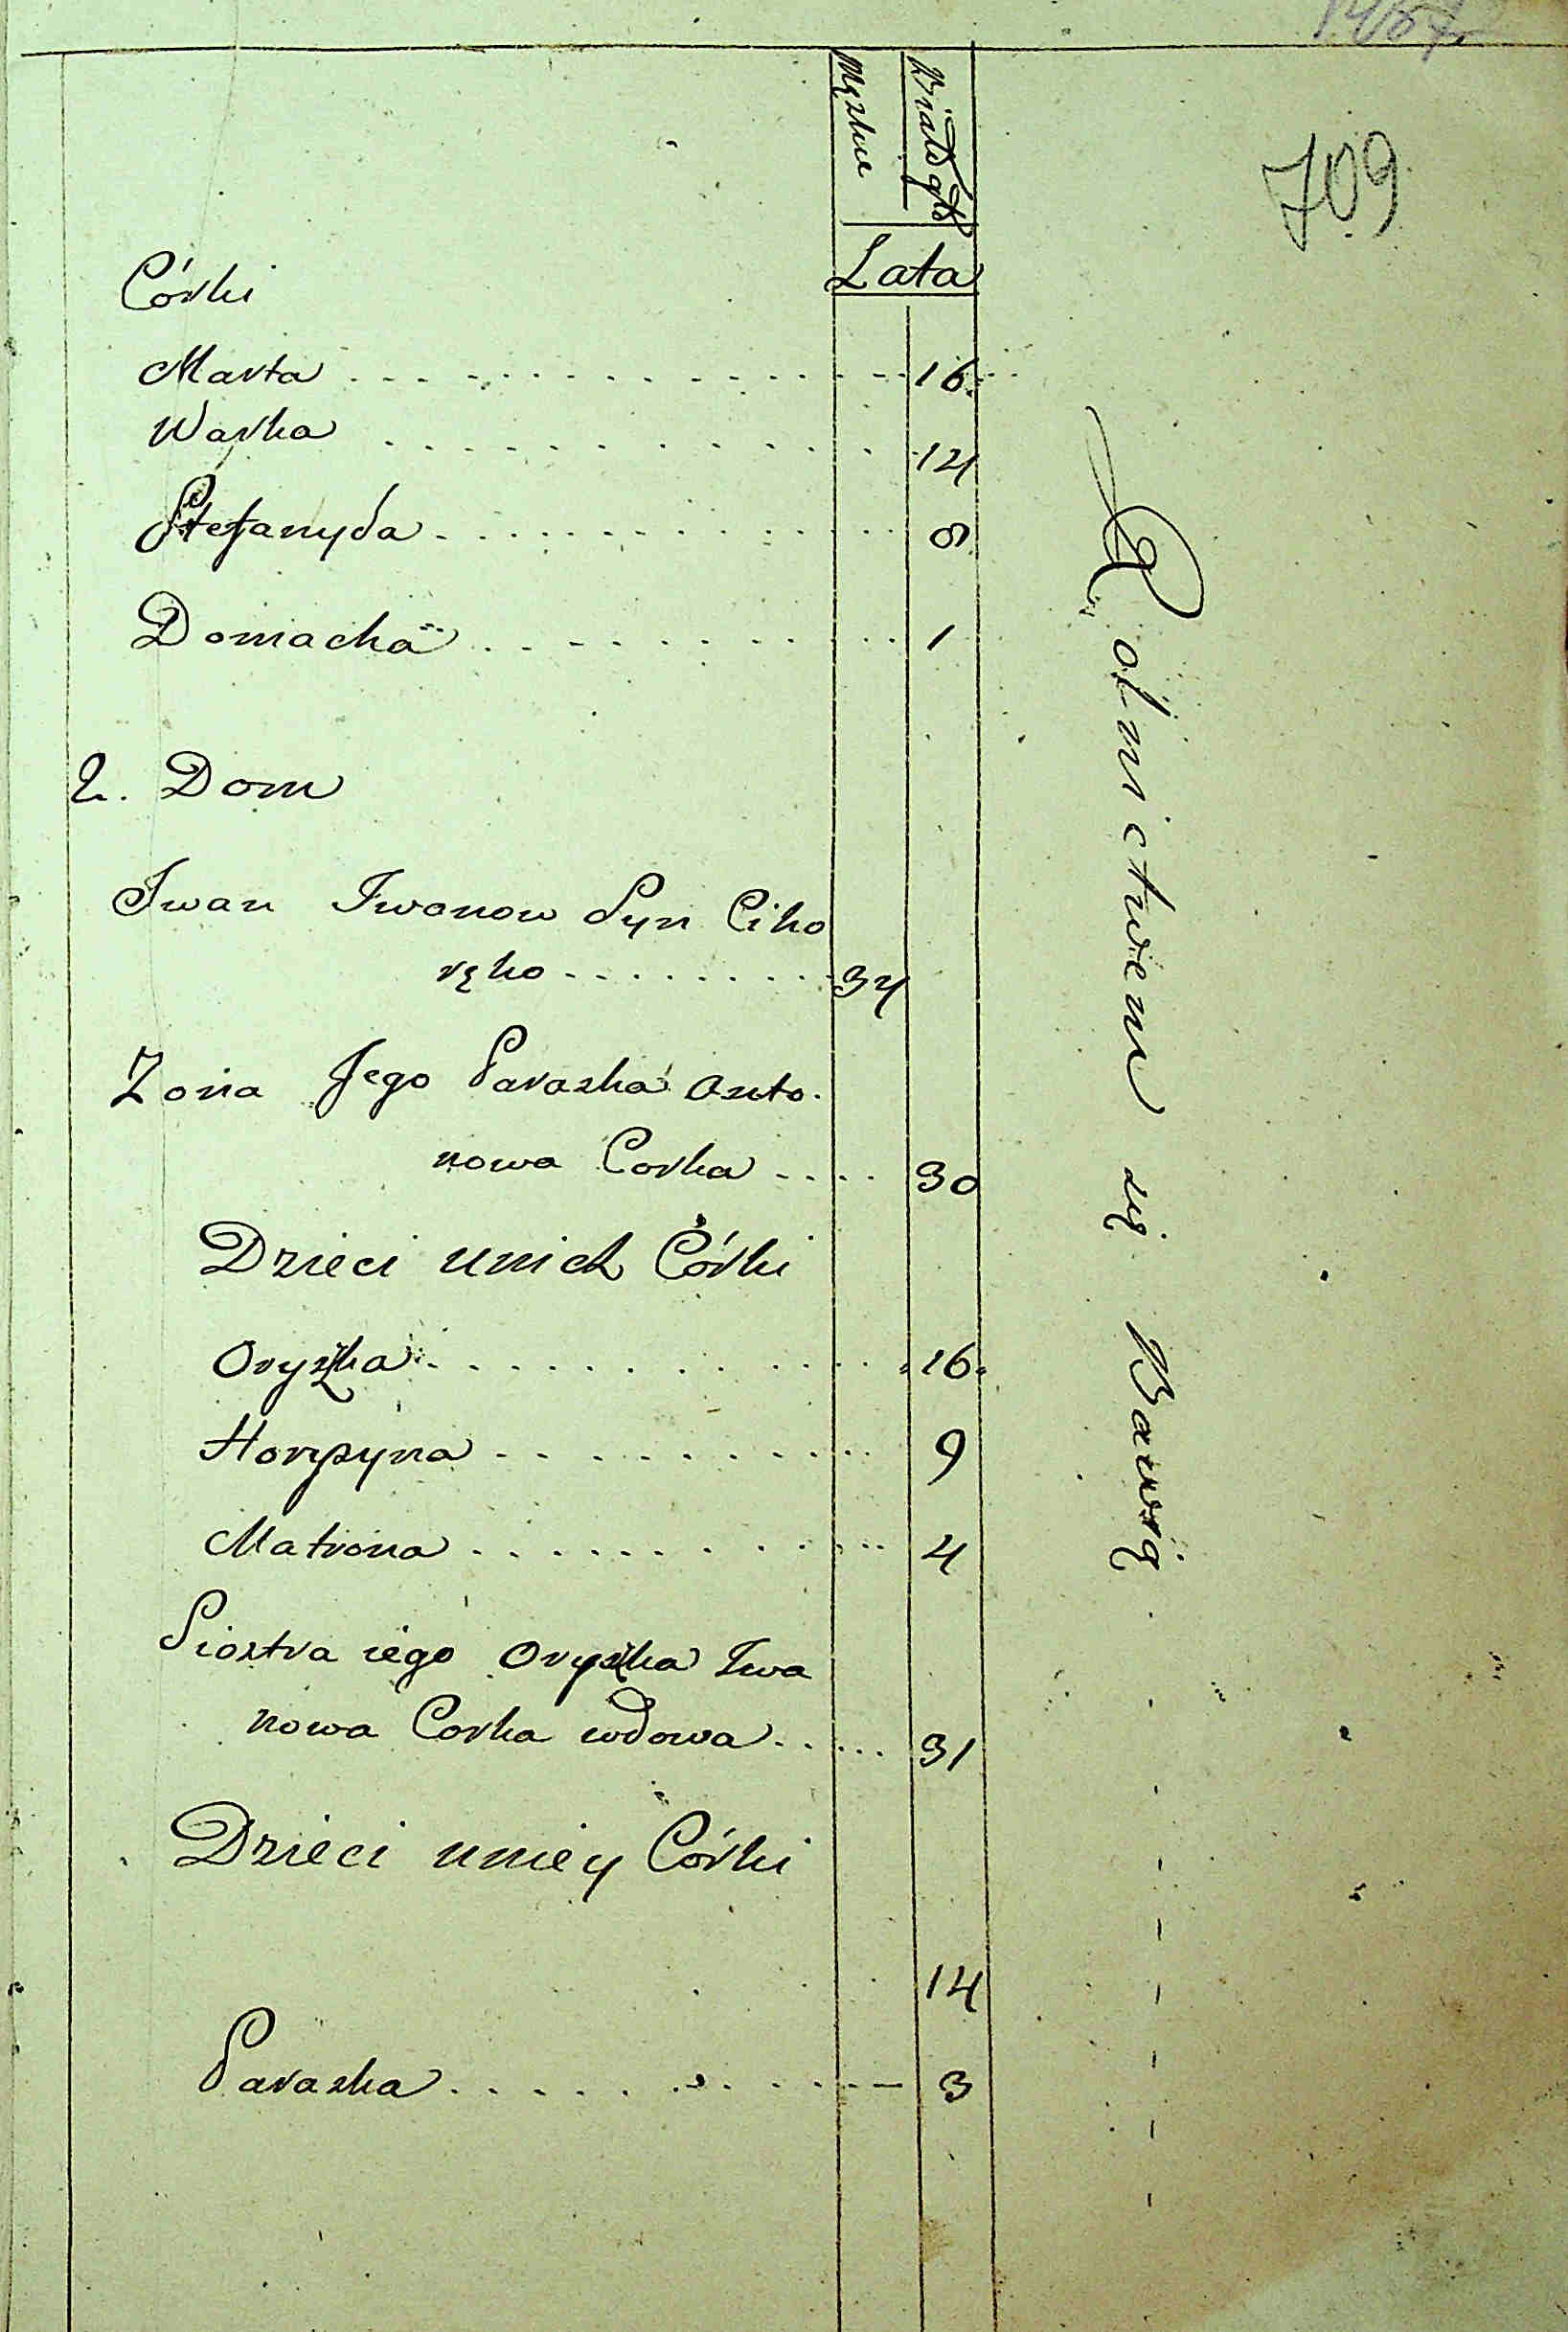 709
Męzkie
Białogło
Lata
Córki
Marta 16
Warka 14
Stefanyda 8
Domacha 1
2. Dom
Iwan Iwanow Syn Ciho
ręko 34
Zona Jego Paraska Anto.
nowa Corka 30
Dzieci unich Córki
Oryszka 16
Horpyna 9
Matrona 4
Siostra iego Oryszka Iwa
nowa Corka wdowa 31
Dzieci unięy Córki
14
Paraska 3
Rolnictwem się Bawią